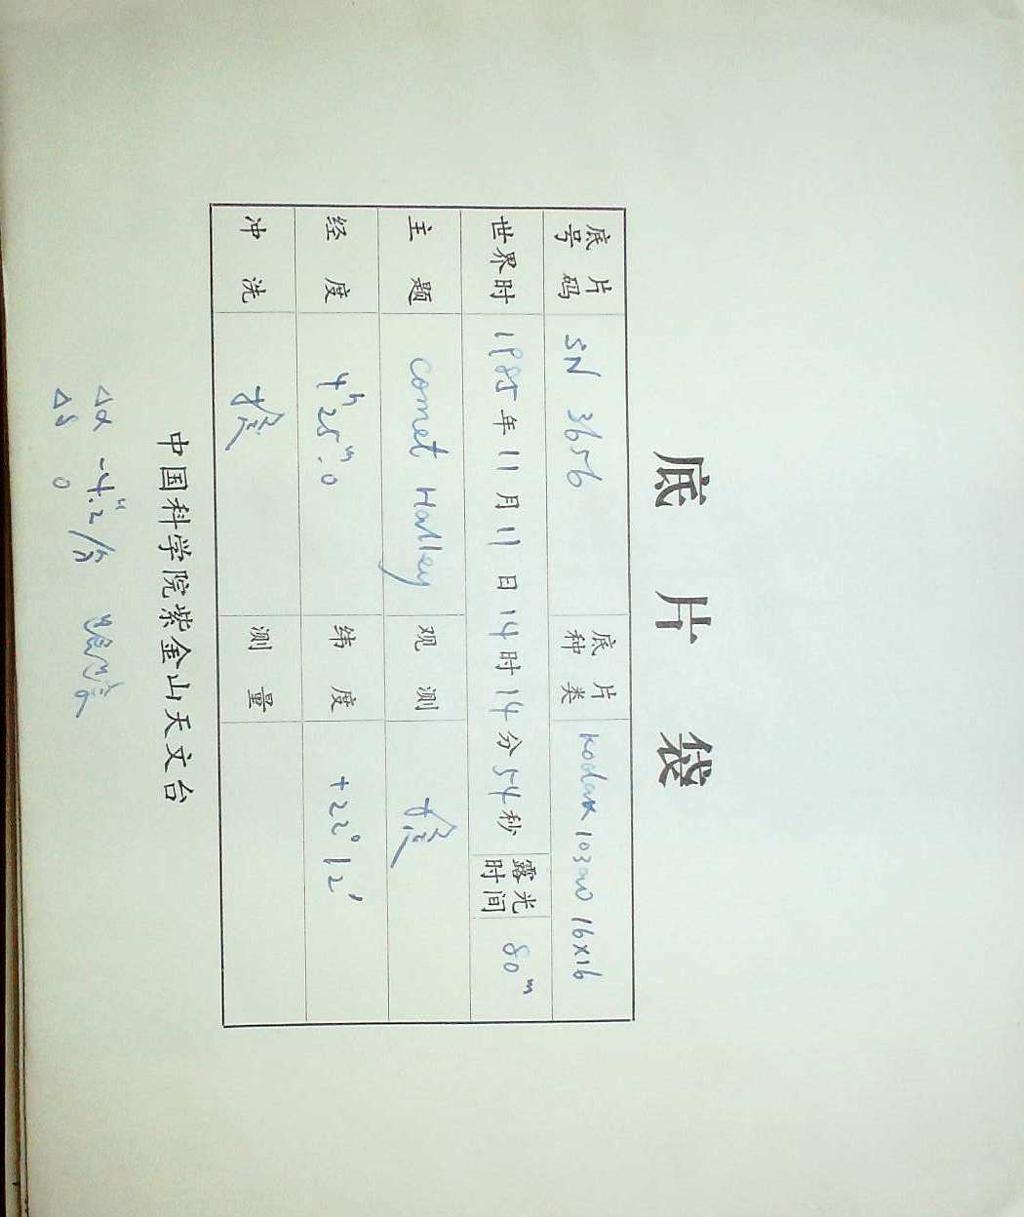 底片袋
底片号码 SN 3656 底片种类 Kodak 103a0 16×16
世界时 1985年11月11日14时14分54秒 露光时间 80ᵐ
主题 Comet Halley 观测
经度 4ʰ25ᵐ.0 纬度 +22°12′
冲洗 测量
中国科学院紫金山天文台
Δα -4.″2/分
Δδ 0